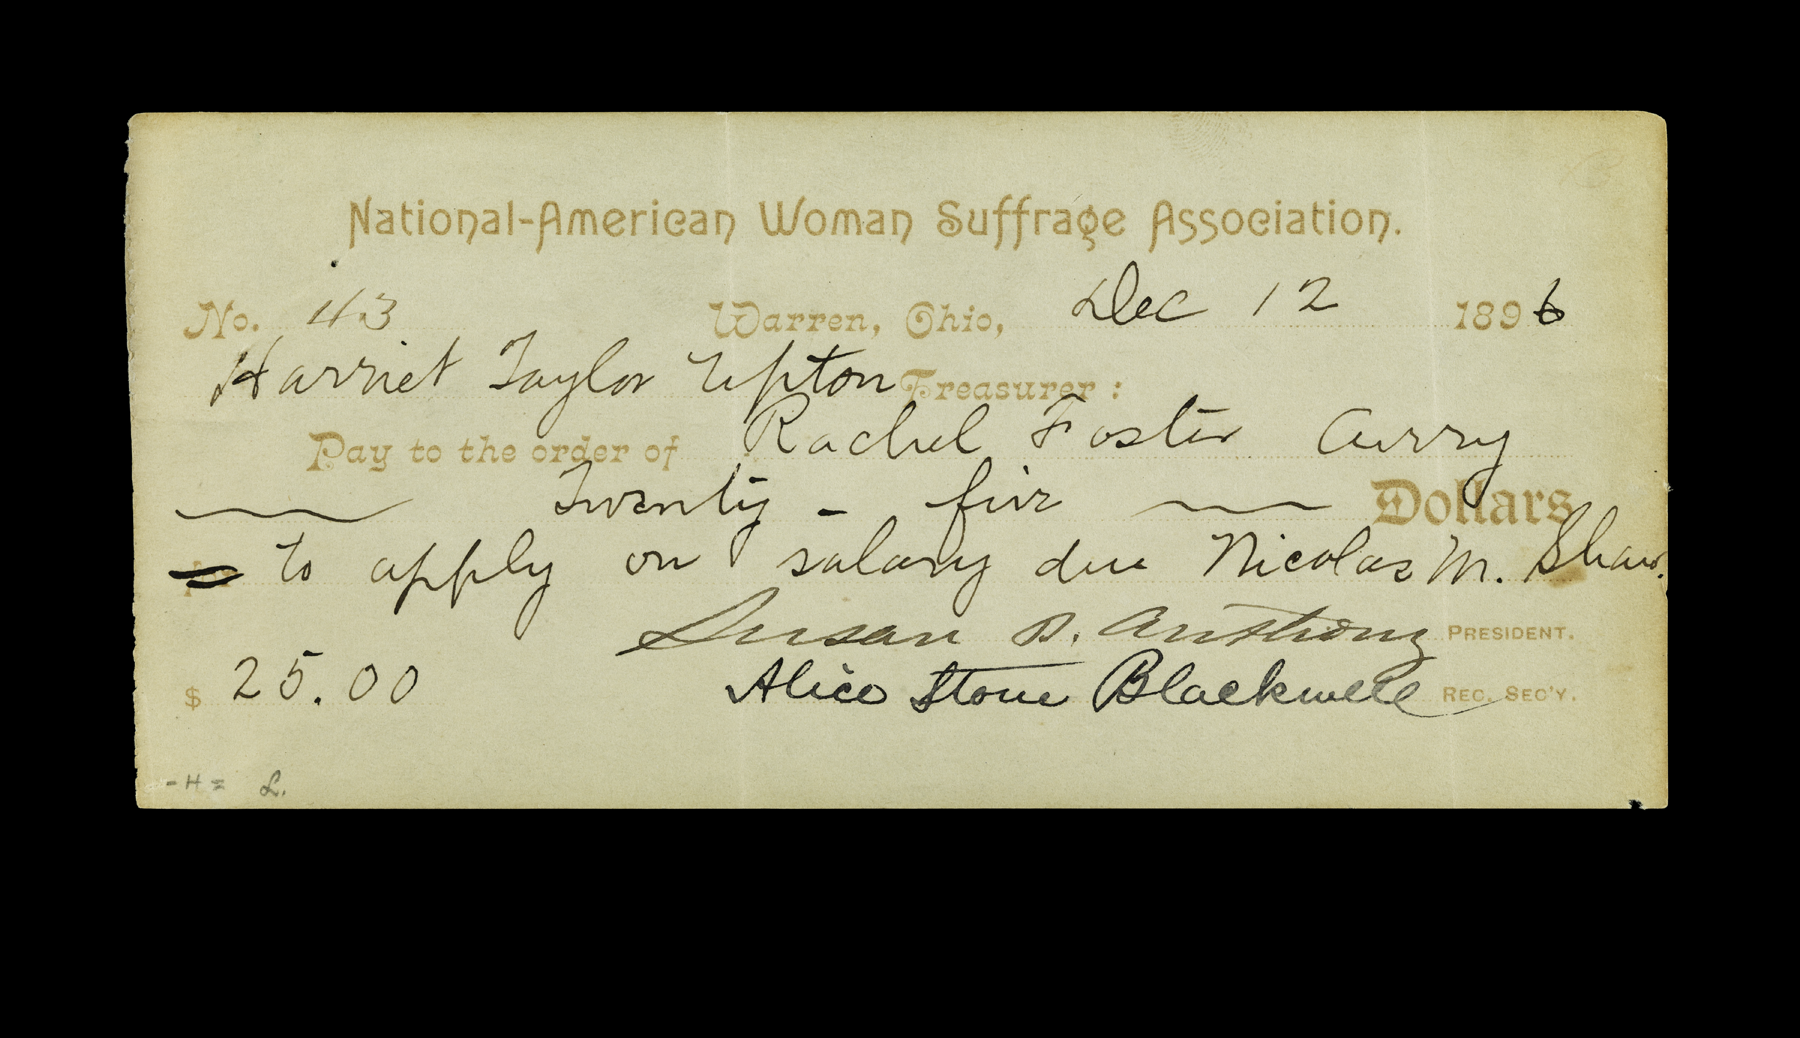 National-American Woman Suffrage Association.
No. 43 Warren, Ohio, Dec 12 1896
Harriet Taylor Upton Treasurer:
Pay to the order of Rachel Foster Avery
Twenty - five Dollars
to apply on salary due Nicolas M. Shaw.
Susan B. Anthony PRESIDENT.
$ 25.00 Alice Stone Blackwell REC. SEC'Y.
-H= L.